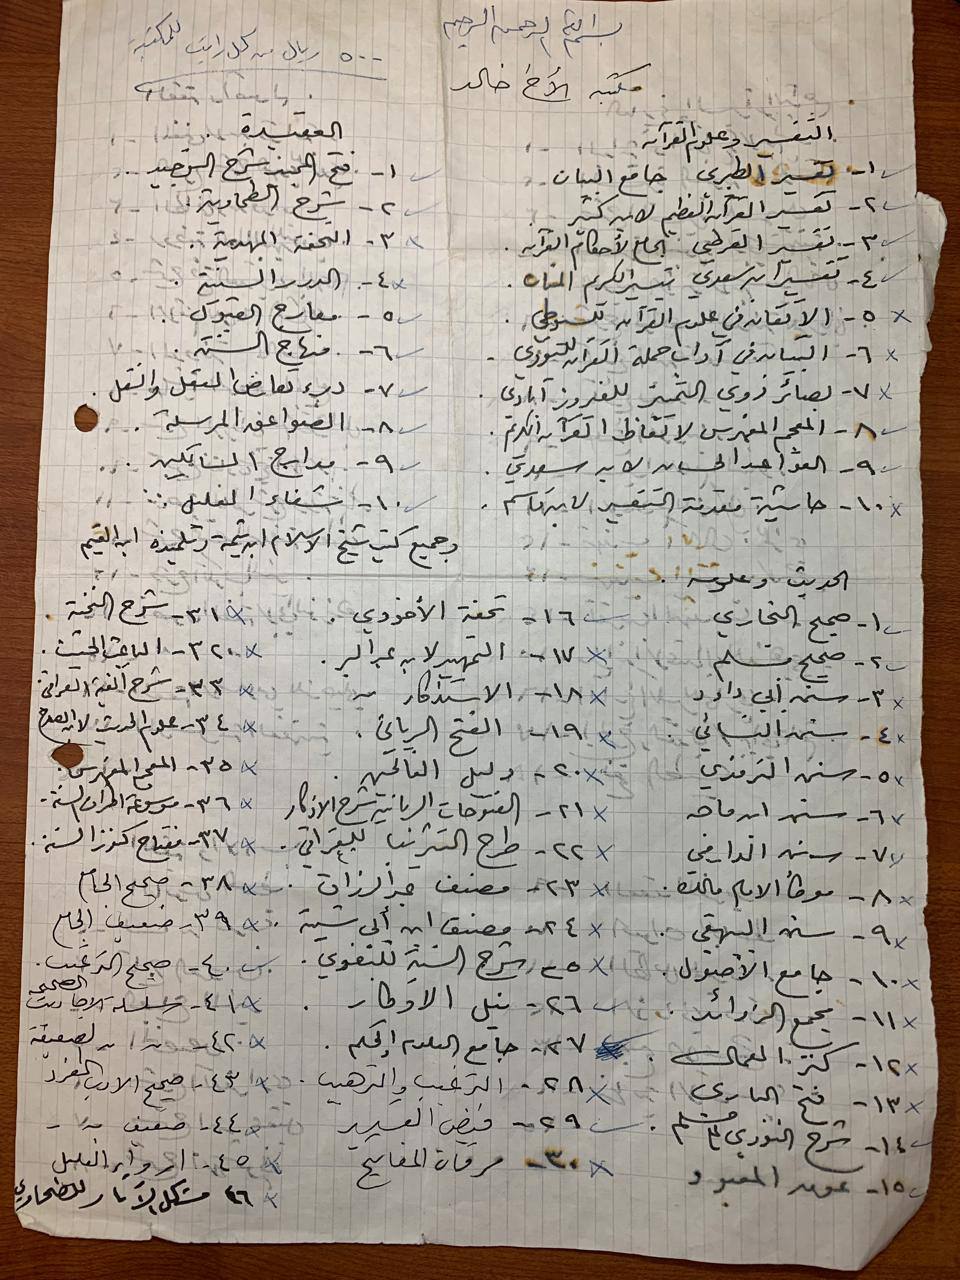 بسم الله الرحمن الرحيم
٥٠٠ ريال من كل راتب للمكتبة
مكتبة الأخ خالد
التفسير وعلوم القرآن
١- تفسير الطبري جامع البيان
٢- تفسير القرآن العظيم لابن كثير
٣- تفسير القرطبي الجامع لأحكام القرآن .
٤- تفسير ابن سعدي تيسير الكريم المنان .
٥- الاتقان في علوم القرآن للسيوطي .
٦- التبيان في آداب حملة القرآن للنووي .
٧- بصائر ذوي التمييز للفيروز آبادي .
٨- المعجم المفهرس لألفاظ القرآن الكريم .
٩- القواعد الحسان لابن سعدي .
١٠- حاشية مقدمة التفسير لابن قاسم .
العقيدة .
١- فتح المجيد شرح التوحيد .
٢- شرح الطحاوية .
٣- التحفة المهدية .
٤- الدرر السنية .
٥- معارج القبول .
٦- منهاج السنة .
٧- درء تعارض العقل والنقل .
٨- الصواعق المرسلة . .
٩- مدارج السالكين . .
١٠- شفاء العليل . .
وجميع كتب شيخ الاسلام ابن تيمية وتلميذه ابن القيم
الحديث وعلومه .
١- صحيح البخاري
٢- صحيح مسلم
٣- سنن أبي داود
٤- سنن النسائي .
٥- سنن الترمذي
٦- سنن ابن ماجه
٧- سنن الدارمي
٨- موطأ الامام مالك .
٩- سنن البيهقي .
١٠- جامع الأصول .
١١- مجمع الزوائد .
١٢- كنز العمال .
١٣- فتح الباري
١٤- شرح النووي لمسلم .
١٥- عون المعبود
١٦- تحفة الأحوذي .
١٧- التمهيد لابن عبد البر .
١٨- الاستذكار
١٩- الفتح الرباني .
٢٠- دليل الفالحين .
٢١- الفتوحات الربانية شرح الاذكار
٢٢- طرح التثريب للعراقي .
٢٣- مصنف عبد الرزاق .
٢٤- مصنف ابن أبي شيبة .
٢٥- شرح السنة للبغوي .
٢٦- نيل الاوطار .
٢٧- جامع العلوم والحكم .
٢٨- الترغيب والترهيب .
٢٩- فيض القدير
٣٠- مرقاة المفاتيح
٣١- شرح النخبة
٣٢- الباعث الحثيث .
٣٣- شرح ألفية العراقي
٣٤- علوم الحديث لابن الصلاح
٣٥- المعجم المفهرس .
٣٦- موسوعة أطراف السنة
٣٧- مفتاح كنوز السنة .
٣٨- صحيح الجامع
٣٩- ضعيف الجامع
٤٠- صحيح الترغيب .
٤١- سلسلة الأحاديث الصحيحة
٤٢- " " الضعيفة
٤٣- صحيح الادب المفرد
٤٤- ضعيف " "
٤٥- ارواء الغليل
٤٦ مشكل الآثار للطحاوي